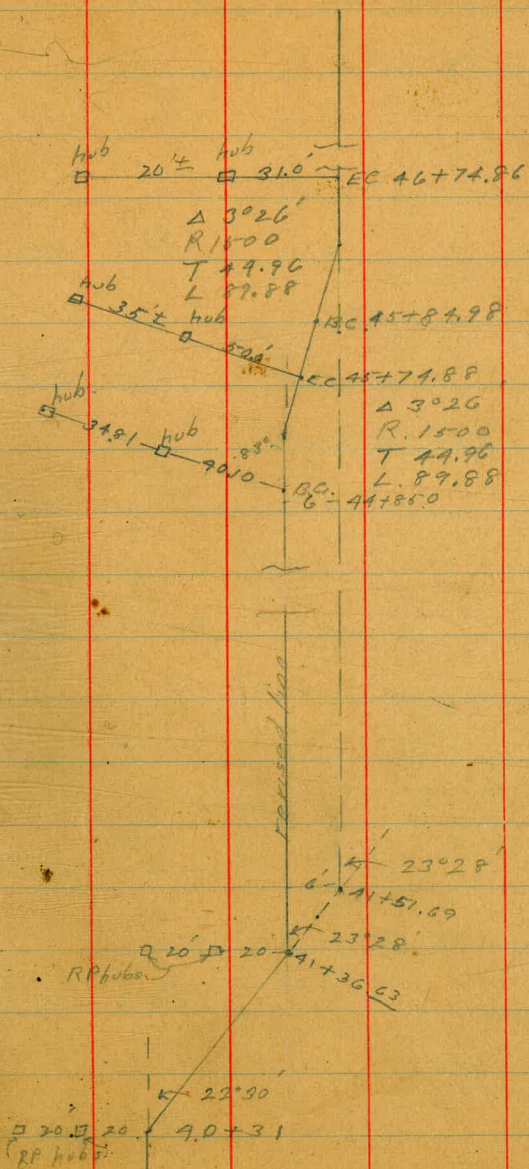 hub 20'± hub 31.0' EC 46+74.86
Δ 3°26'
R 1500
T 44.96
L 89.88
hub 35'± hub 50.0'
B.C. 45+84.98
EC 45+74.88
Δ 3°26
R. 1500
T 44.96
L. 89.88
hub 34.81 hub 40.10 B.C.
.83°
6' 44+85.0
revised line
23°28'
6' 41+51.69
23°28'
20' 20 41+36.63
RP hubs
22°30'
20' 20 40+31
RP hubs